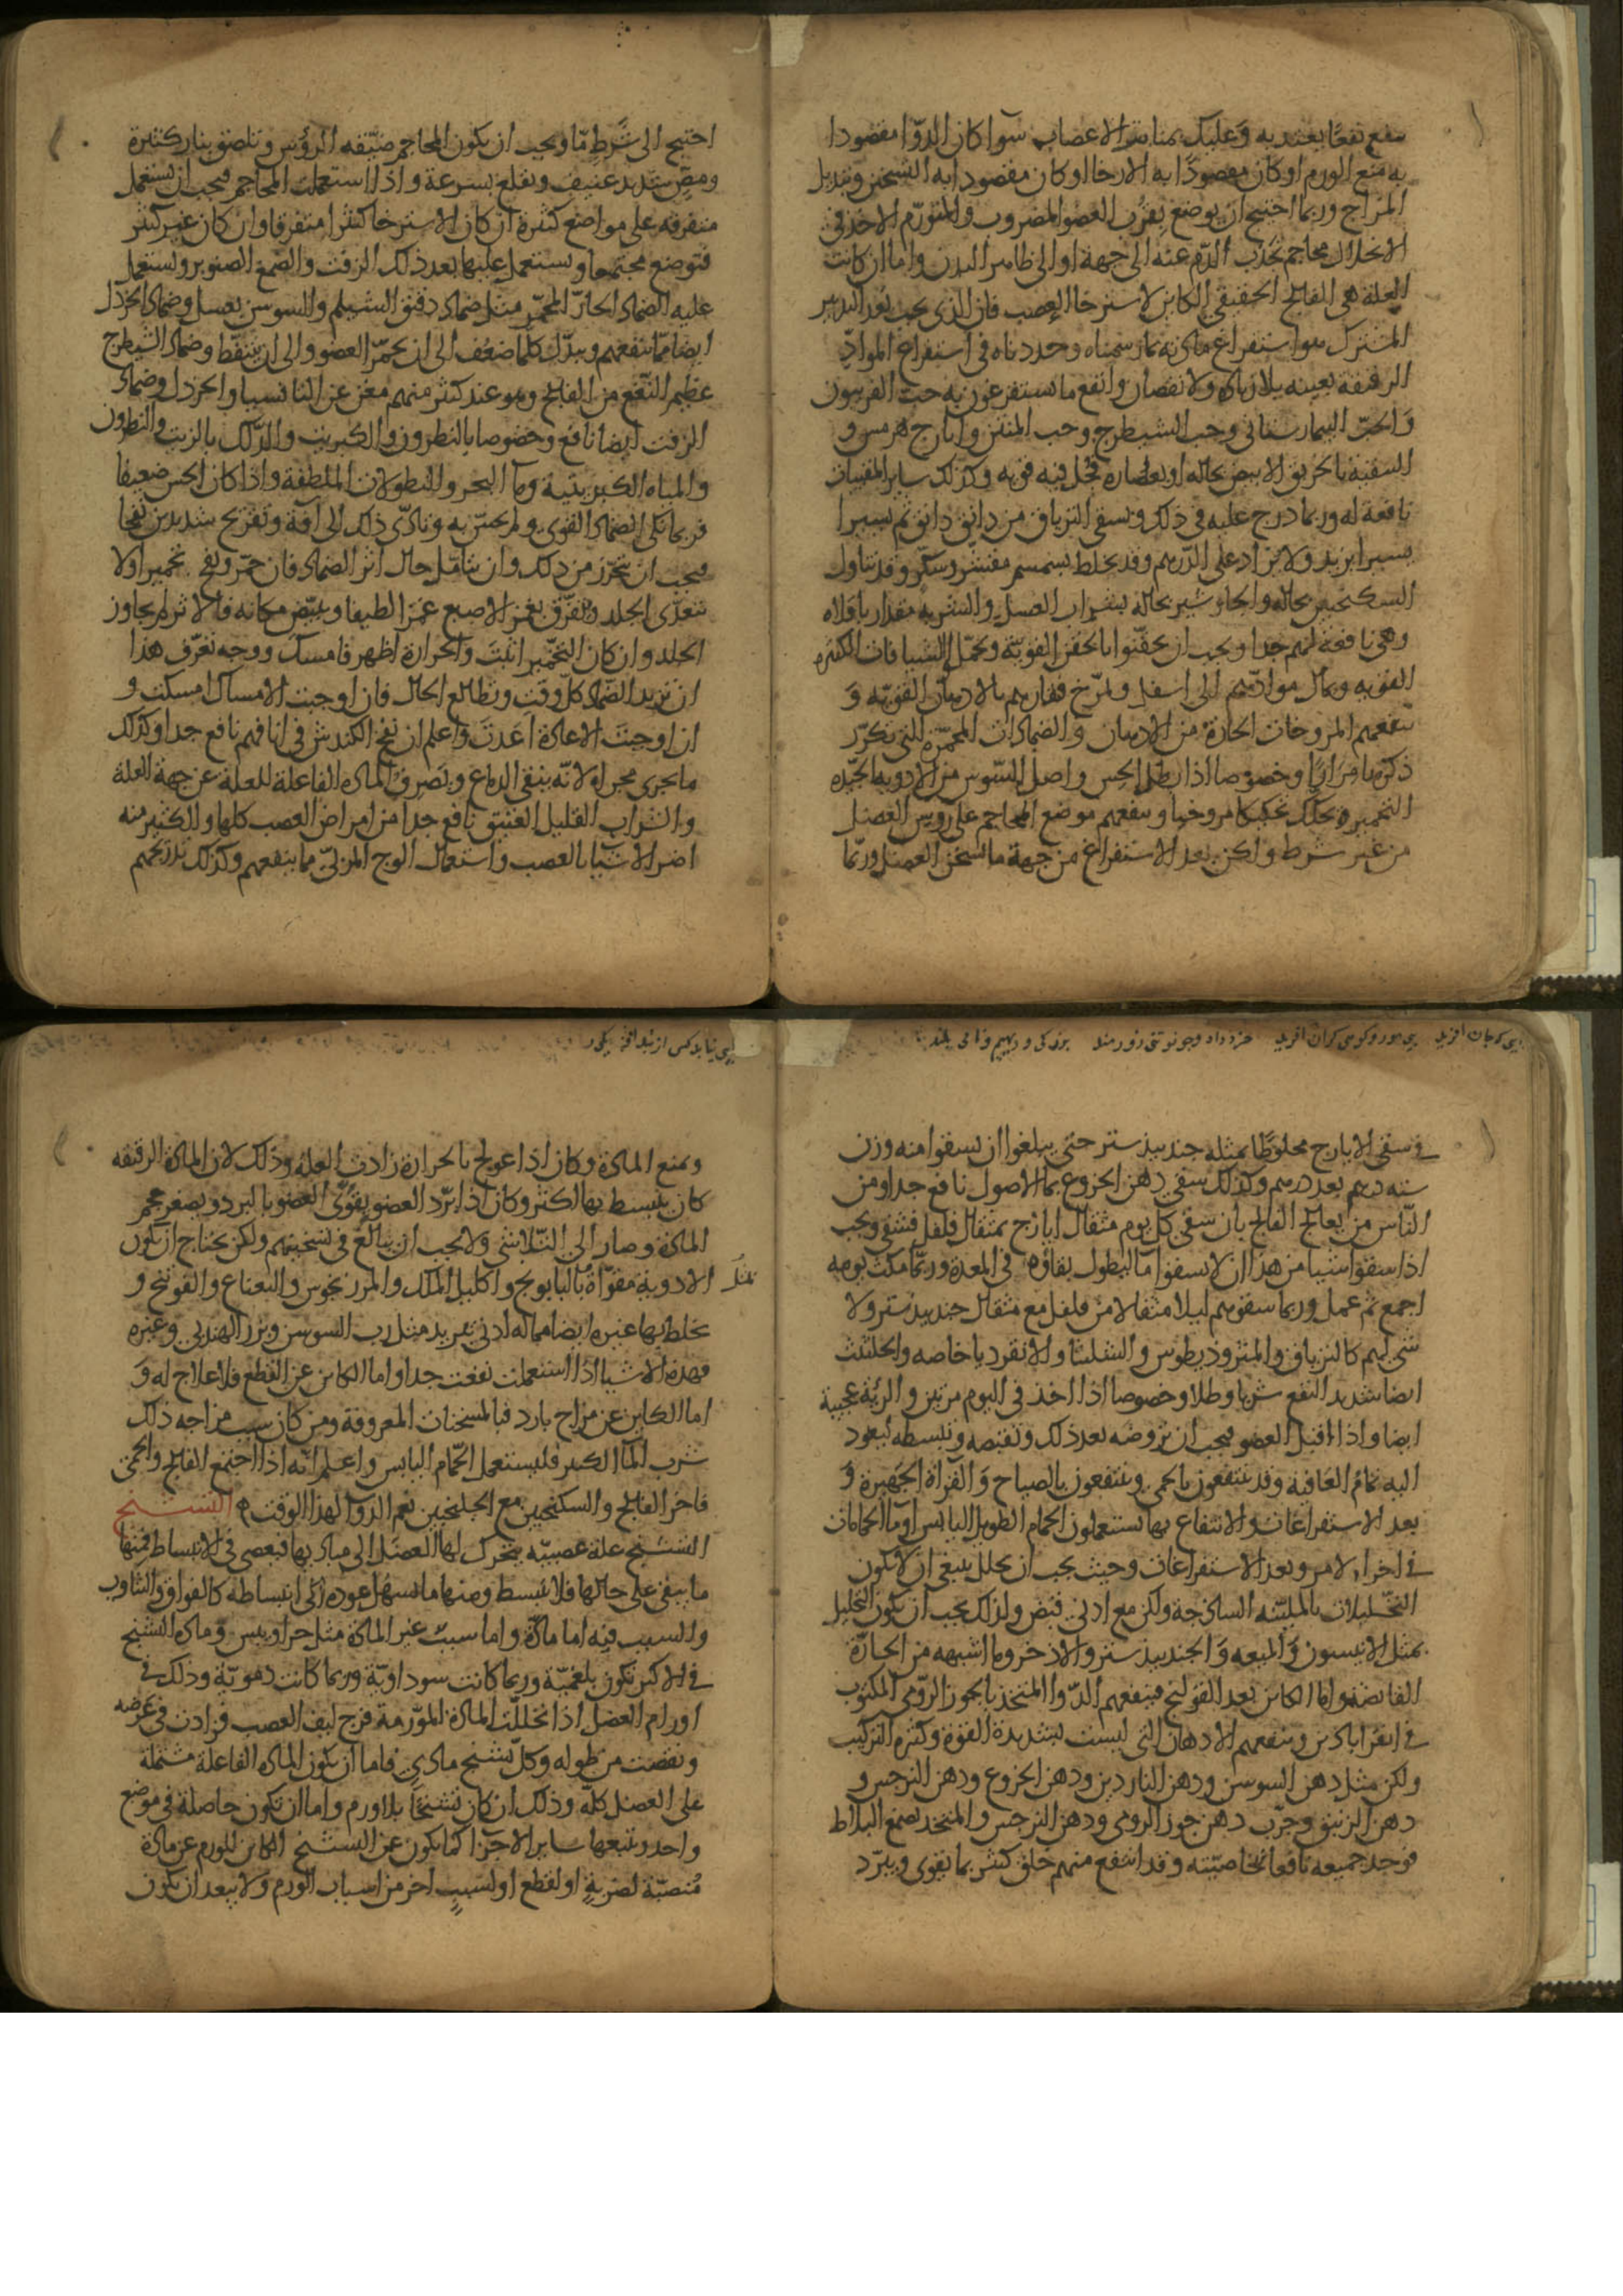 ينفع نفعا يعتد به وعليك بمنابت الاعصاب سوا كان الدوا مقصودا
به منع الورم او كان مقصودا به الارخا او كان مقصودا به التسخين وتبديل
المزاج وربما احتيج ان يوضع بقرب العضو المضروب والمتورم الاخذ في
الانحلال محاجم تجذب الدم عنه الى جهة او الى ظاهر البدن واما ان كانت
العلة هي الفالج الحقيقي الكاين لاسترخا العصب فان الذي يجب بعد التدبير
المشترك هو استفراغ مادته بما رسمناه وحددناه في استفراغ المواد
الرقيقة بعينه بلا زيادة ولا نقصان وانفع ما يستفرغون به حب الفربيون
والحب البيمارستاني وحب الشيطرج وحب المنتن وايارج هرمس و
السقية بالخربق الابيض بحاله او بعصارة فجل فيه قوته وكذلك ساير المقييات
نافعة له وربما درج عليه في ذلك ويسقي الترياق من دانق دانق ثم يسيرا
يسيرا يزيد ولا يزاد على الدرهم وقد يخلط بسمسم مقشر وسكر وقد يتناول
السكنجبين بحاله والجاوشير بحاله بشراب العسل والشربة مقدار باقلاه
وهي نافعة لهم جدا ويجب ان يحقنوا بالحقن القوية ويحمل الشيافات الكثيرة
القوية ويمال موادهم الى اسفل ويمرخ فقارهم بالادهان القوية و
تنفعهم المروخات الحارة من الادهان والضمادات المحمرة التي تكرر
ذكرها مرارا وخصوصا اذا بطل الحس واصل السوس من الادوية الجيدة
التحمير وتحك تحكيكا مروخيا وينفعهم موضع المحاجم على روس العضل
من غير شرط ولكن بعد الاستفراغ من جهة ما يسخن العضل وربما
احتيج الى شرط ما ويجب ان يكون المحاجم ضيقه الروس وتلصق بنار كثيرة
ومص شديد عنيف وتقلع بسرعة واذا استعملت المحاجم فيجب ان تستعمل
متفرقه على مواضع كثيرة ان كان الاسترخا كثيرا متفرقا وان كان غير كثير
فتوضع مجتمعا وتستعمل عليها بعد ذلك الزفت والصمغ الصنوبر وتستعمل
عليه الضماد الحار المحمر مثل ضماد دقيق الشيلم والسوسن بعسل وضماد الخردل
ايضا مما ينفعهم ويبدل كلما ضعف الى ان يحمر العضو والى ان يتنفط وضماد الشيطرج
عظيم النفع من الفالج وهو عند كثير منهم مغن عن الثافسيا والخردل وضماد
الزفت ايضا نافع وخصوصا بالنطرون والكبريت والدلك بالزيت والنطرون
والمياه الكبريتية وما البحر والنطولات الملطفة واذا كان الحس ضعيفا
فربما نكى الضماد القوي ولم يحس به وتادى ذلك الى افة وتقريح شديدين فيها
فيجب ان يتحرز من ذلك وان تتامل حال اثر الضماد فان حمر ونفخ تحميرا ولا
يتعدى الجلد ويفرق بغمز الاصبع غمزا لطيفا ويبيض مكانه فالاثر لم يجاوز
الجلد وان كان التحمير اثبت والحرارة اظهر فامسك ووجه تعرف هذا
ان تريد الضماد كل وقت وتطالع الحال فان اوجبت الامساك امسكت و
ان اوجبت الاعادة اعدت واعلم ان نفخ الكندش في انافهم نافع جدا وكذلك
ما يجري مجراه لانه ينقي الدماغ ويصرف المادة الفاعلة للعلة عن جهة العلة
والشراب القليل العتيق نافع جدا من امراض العصب كلها والكثير منه
اضر الاشيا بالعصب واستعمال الوج المربي مما ينفعهم وكذلك تدريجهم
في سقي الايارج مخلوطا بمثله جندبيدستر حتى يبلغوا ان يسقوا منه وزن
سته درهم بعد درهم وكذلك سقي دهن الخروع بما الاصول نافع جدا ومن
الناس من يعالج الفالج بان سقي كل يوم مثقال ايارج بمثقال فلفل فشفي ويجب
اذا سقوا شيا من هذا ان لا يسقوا ما ليطول بقاؤه في المعدة وربما مكث يومه
اجمع ثم عمل وربما سقوهم ليلا مثقالا من فلفل مع مثقال جندبيدستر ولا
شي لهم كالترياق والمثروذيطوس والشلثا والانقرديا خاصه والحلتيت
ايضا شديد النفع شربا وطلا وخصوصا اذا اخذ في اليوم مرتين والرئة عجيبة
ايضا واذا اقبل العضو فيجب ان تروضه بعد ذلك وتقبضه وتبسطه ليعود
اليه تمام العافيه وقد ينتفعون بالحمى وينتفعون بالصياح والقراة الجهيرة و
بعد الاستفراغات والانتفاع بها يستعملون الحمام الطويل اليابس او ما الحمامات
في اخر الامر وبعد الاستفراغات وحيث يجب ان يحلل ينبغي ان لا يكون
التحليلات بالملينه الساذجة ولكن مع ادنى قبض ولذلك يجب ان يكون التحليل
بمثل الانيسون والميعه والجندبيدستر والاذخر وما اشبهه من الحارة
القابضة واما الكاين بعد القولنج فينفعهم الدوا المتخذ بالجوز الرومي المكتوب
في القراباذين وينفعهم الادهان التي ليست بشديدة القوة وكثيرة التركيب
ولكن مثل دهن السوسن ودهن الناردين ودهن الخروع ودهن النرجس و
دهن الزنبق وجرب دهن جوز الرومي ودهن النرجس والمتخذ بصمغ البلاط
فوجد جميعه نافعا لخاصيته وقد انتفع منهم خلق كثير بما يقوي ويبرد
ويمنع المادة وكان اذا عولج بالحرارة زادت العلة وذلك لان المادة الرقيقه
كان ينبسط بها اكثر وكان اذا برد العضو يقوى العضو بالبرد ويصغر حجم
المادة وصار الى التلاشي ولا يجب ان يبالغ في تسخينهم ولكن يحتاج ان تكون
الادوية مقواة بالبابونج واكليل الملك والمرزنجوش والنعناع والفوتنج و
يخلط بها غيره ايضا مما له ادنى تبريد مثل رب السوسن وبزر الهندبي وغيره
فهذه الاشيا اذا استعملت نفعت جدا واما الكاين عن القطع فلا علاج له و
اما الكاين عن مزاج بارد فبالمسخنات المعروفة ومن كان سبب مزاجه ذلك
شرب الما الكثير فليستعمل الحمام اليابس واعلم انه اذا اجتمع الفالج والحمى
فاخر الفالج والسكنجبين مع الجلنجبين نعم الدوا لهذا الوقت ه التشنج
التشنج علة عصبيه يتحرك لها العضل الى مباديها فيعصى في الانبساط فمنها
ما يبقى على حالها فلا ينبسط ومنها ما يسهل عوده الى انبساطه كالفواق والتثاوب
والسبب فيه اما مادة واما سبب غير المادة مثل حر او يبس ومادة التشنج
في الاكثر تكون بلغمية وربما كانت سوداوية وربما كانت دموية وذلك في
اورام العضل اذا تحللت المادة المورمة فرج ليف العصب فزادت في عرضه
ونقصت من طوله وكل تشنج مادي فاما ان يكون المادة الفاعلة مشتملة
على العضل كله وذلك ان كان تشنجا بلا ورم واما ان تكون حاصلة في موضع
واحد ويتبعها ساير الاجزا كما يكون عن التشنج الكاين للورم عن مادة
منصبة لضربة او لقطع او لسبب اخر من اسباب الورم ولا يبعد ان يكون